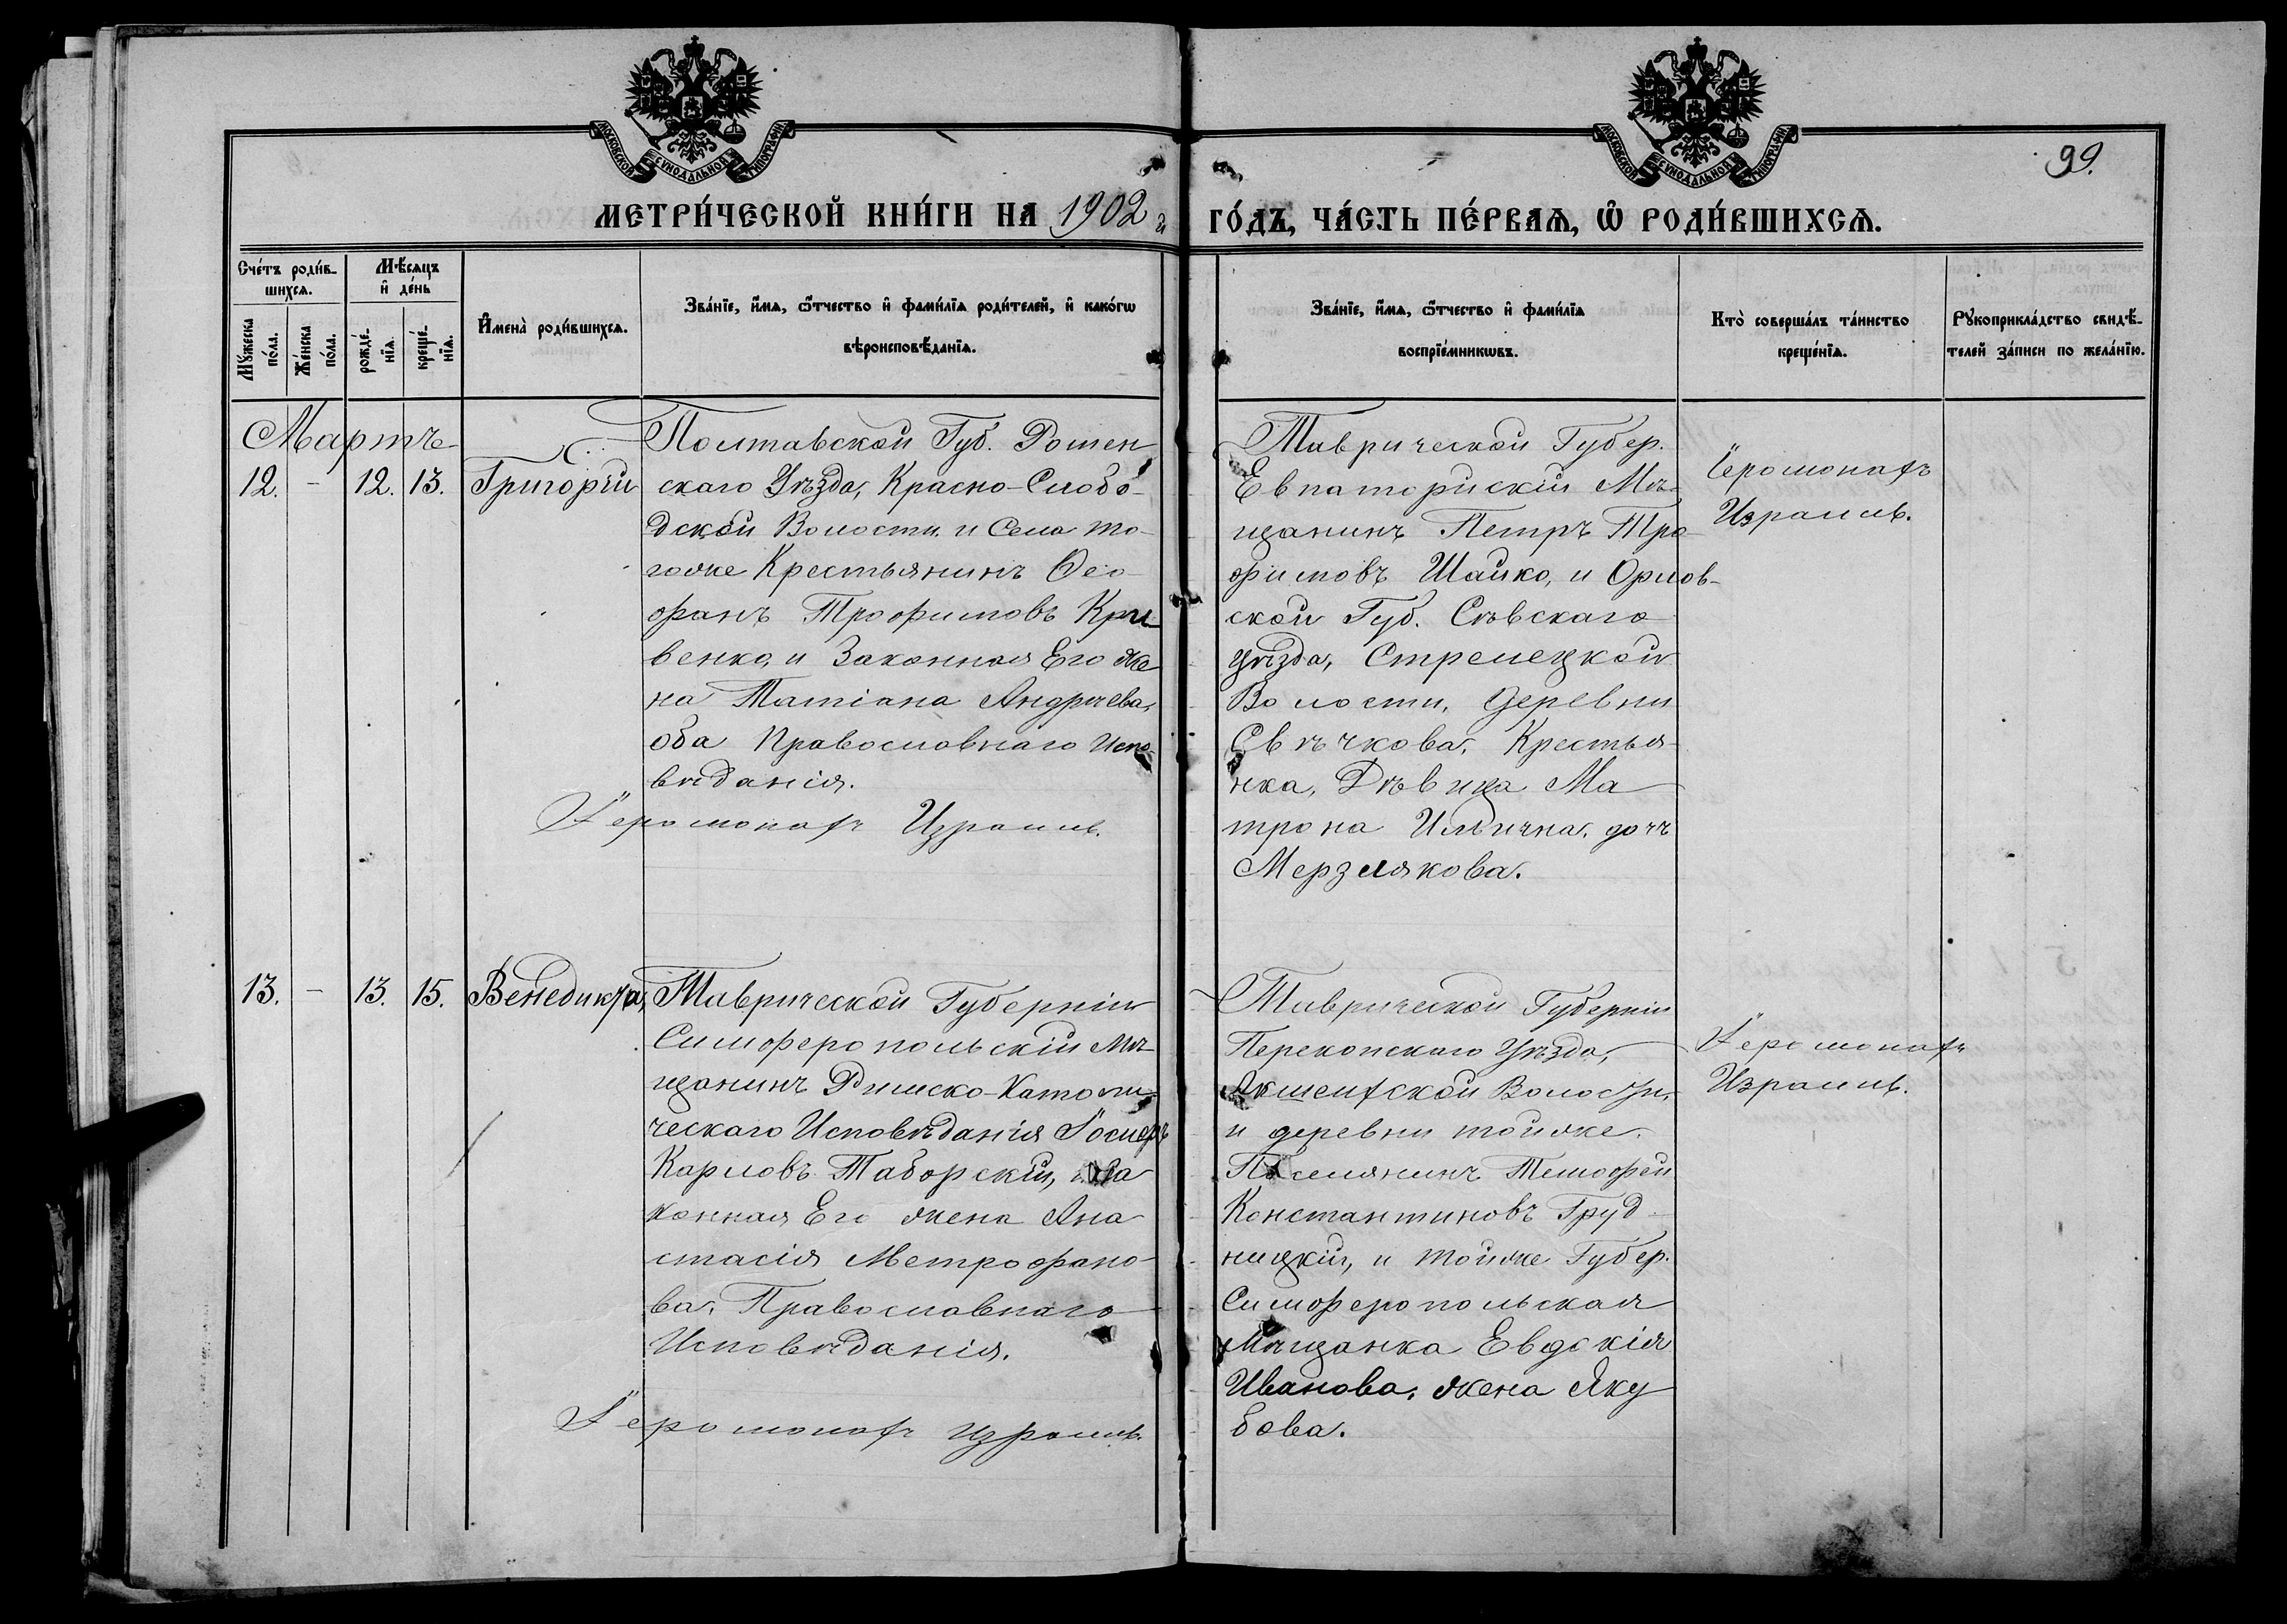 МОСКОВСКОЙ СУНОДАЛЬНОЙ ТИПОГРАФІИ
МОСКОВСКОЙ СУНОДАЛЬНОЙ ТИПОГРАФІИ
99.
МЕТРИ́ЧЕСКОЙ КНИ́ГИ НА 1902й ГО́ДЪ, ЧА́СТЬ ПЕ́РВАѦ, Ѡ РОДИ́ВШИХСѦ.
Сче́тъ роди́в-
шихсѧ.
Мꙋжеска
по́ла.
Же́нска
по́ла.
Мѣ́сѧцъ
и҆ де́нь
рожде́-
нїѧ.
креще́-
нїѧ.
И҆мена̀ роди́вшихсѧ.
Зва́нїе, и҆́мѧ, ѻ҆́тчество и҆ фами́лїѧ роди́телей, и҆ како́гѡ
вѣроисповѣ́данїѧ.
Зва́нїе, и҆́мѧ, ѻ҆́тчество и҆ фами́лїѧ
воспрїе́мникѡвъ.
Кто̀ соверша́лъ та́инство
креще́нїѧ.
Рꙋкоприкла́дство свидѣ́-
телей за́писи по жела́нїю.
Мартъ
12. - 12. 13. Григорій
Полтавской Губ. Ромен
скаго Уѣзда, Красно-Слобо-
дской Волости и Села то-
гоже Крестьянинъ Ѳео-
фанъ Трофимовъ Кри-
венко, и Законная Его же
на Татіана Андреева,
оба Православнаго Испо-
вѣданія.
Іеромонахъ Израиль.
Таврической Губер.
Евпаторискій Мѣ-
щанинъ Петръ Тро-
фимовъ Шайко, и Орлов-
ской Губ. Сѣвскаго
уѣзда, Стрелецкой
Волости, деревни
Свѣчкова, Крестья-
нка, Дѣвица Ма
трона Ильична, дочъ
Мерзлякова.
Іеромонахъ
Израиль.
13. - 13. 15. Венедикта,
Таврической Губерніи
Симферопольскій Мѣ-
щанинъ Римско-Католи-
ческаго Исповѣданія Іосифъ
Карловъ Таборскій, и За
конная Его жена Ана
стасія Метрофано-
ва, Православнаго
Исповѣданія.
Іеромонахъ Израиль.
Таврической Губерніи
Перекопскаго Уѣзда,
Акшеихской Волости,
и деревни тойже.
Поселянинъ Тимофей
Константиновъ Груд-
ницкій, и тойже Губер.
Симферопольская
Мѣщанка Евдокія
Иванова, жена Яку
бова.
Іеромонахъ
Израиль.